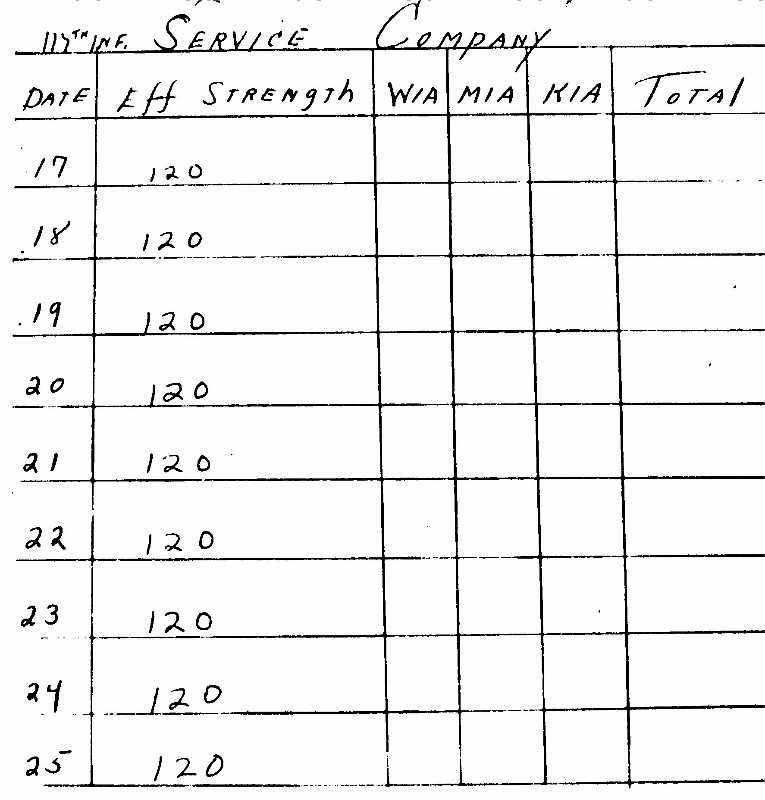 117TH INF. SERVICE COMPANY
DATE Eff STRENgTh WIA MIA KIA TOTAL
17 120
18 120
19 120
20 120
21 120
22 120
23 120
24 120
25 120